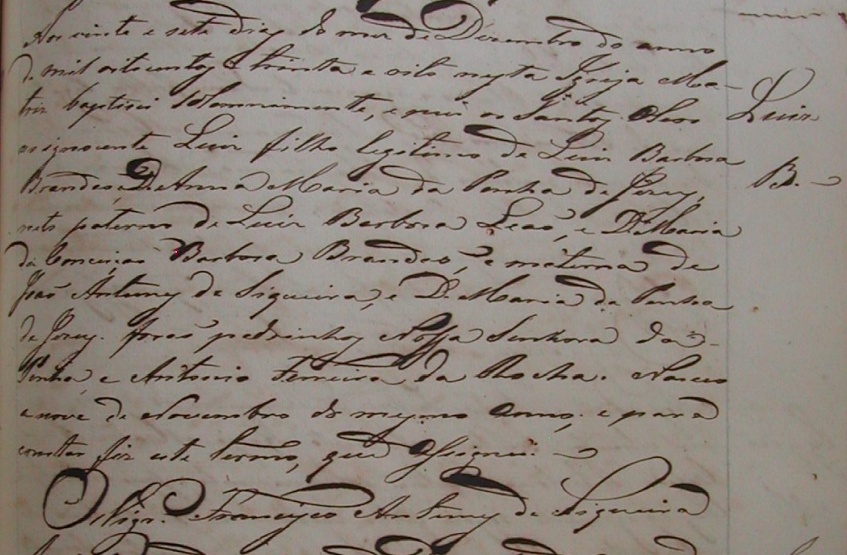 Aos vinte e sete dias do mez de Dezembro do anno
de mil oitocentos e trinta e oito nesta Igreja Ma-
triz baptisei solemnimente, e puz os Santos Oleos
ao ignocente Luiz filho legitimo de Luiz Barbosa
Brandaõ, e D. Anna Maria da Penha de Jesus,
neto paterno de Luiz Barbosa Leaõ, e D. Maria
da Conceiçaõ Barbosa Brandaõ, e materna de
Joaõ Antunes de Siqueira, e D. Maria da Penha
de Jesus. foraõ padrinhos Nossa Senhora da
Penha, e Antonio Ferreira da Rocha. Nasceo
a nove de Novembro do mesmo anno; e para
constar fiz este termo, que assignei.
O Vigr.º Francisco Antunes de Siqueira
Luiz
B.